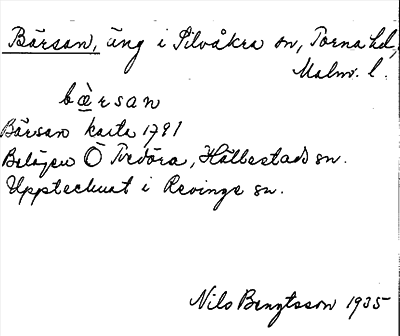 Bärsan, äng i Silvåkra sn, Torna hd,
Malm. l.
bæ̀rsan
Bärsan karta 1791
Belägen Ö Tvedöra, Hällestads sn.
Upptecknat i Revinge sn.
Nils Bengtsson 1935